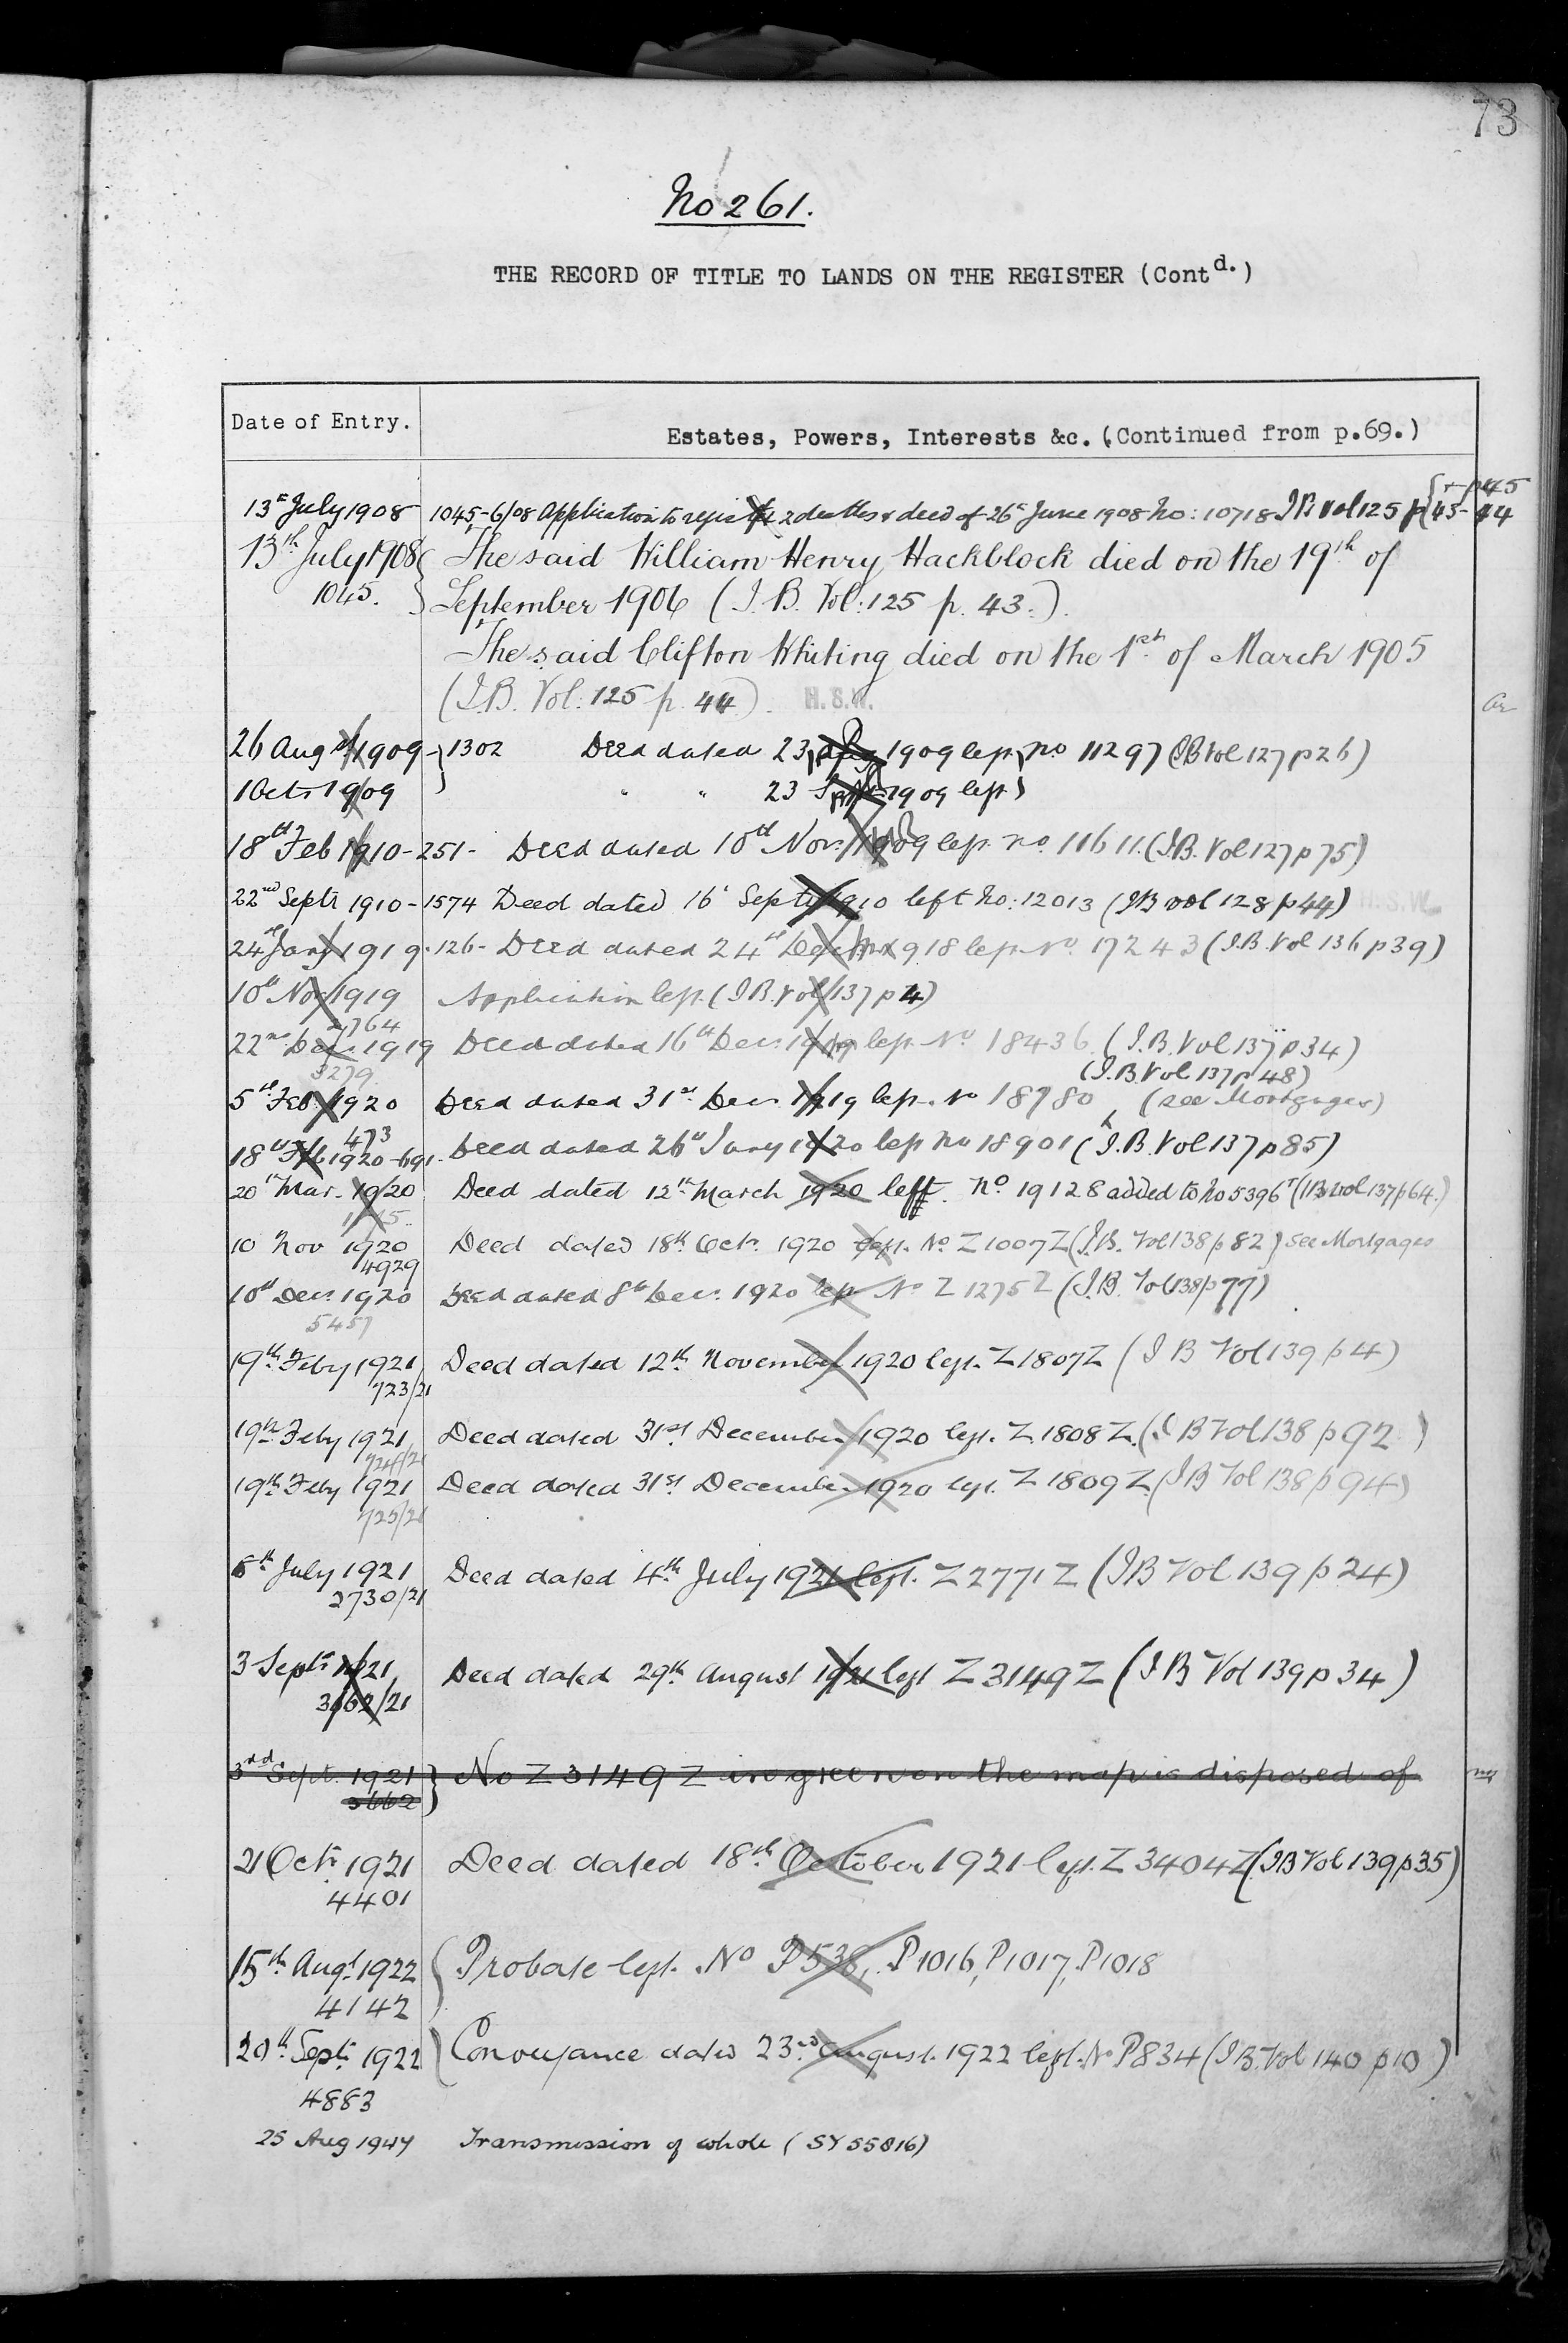 73
No 261.
THE RECORD OF TITLE TO LANDS ON THE REGISTER (Contd.)
Date of Entry.
Estates, Powers, Interests &c. (Continued from p.69.)
13th July 1908 1045-6/08 Application to register 2 deaths & deed of 26th June 1908 No: 10718 I.B. Vol 125 p 43-44
13th July 1908 The said William Henry Hackblock died on the 19th of
1045. September 1906 (I.B. Vol: 125 p. 43.).
The said Clifton Whiting died on the 1st of March 1905
(I.B. Vol: 125 p. 44). H.S.W.
26 Aug 1909 1302 Deed dated 23 1909 left no 11297 (I.B Vol 127 p 26)
1 Octr 1909 " " 23 1909 left
18th Feb 1910 - 251 - Deed dated 10th Nov. 1909 left no. 11611. (I.B. Vol 127 p 75)
22nd Septr 1910 - 1574 Deed dated 16th Septr 1910 left No: 12013 (I.B vol 128 p 44) H.S.W.
24th Jany 1919 - 126 - Deed dated 24th Decr 1918 left No. 17243 (I.B. Vol 136 p 39)
10th Nov 1919 Application left (I.B. Vol 137 p 4)
2764
22nd Decr 1919 Deed dated 16th Decr 1919 left No 18436 (I.B. Vol 137 p 34)
3279 (I.B. Vol 137 p 48)
5th Feb 1920 Deed dated 31st Decr 1919 left No 18780 (see Mortgages)
473
18th Feb 1920 - 691 - Deed dated 26th Jany 1920 left No 18901 (I.B. Vol 137 p 85)
20th Mar. 1920 Deed dated 12th March 1920 left. No. 19128 added to No 5396 (I.B. vol 137 p 64.)
10 Nov 1920 Deed dated 18th Octr 1920 left. No. Z1007Z (I.B. Vol 138 p 82) See Mortgages
4929
10th Decr 1920 Deed dated 8th Decr 1920 left No Z1275Z (I.B. Vol 138 p 77)
5457
19th Feby 1921 Deed dated 12th November 1920 left. Z1807Z (I B Vol 139 p 4)
723/21
19th Feby 1921 Deed dated 31st December 1920 left. Z1808Z. (I B Vol 138 p 92)
724/21
19th Feby 1921 Deed dated 31st December 1920 left. Z1809Z. (I B Vol 138 p 94)
725/21
6th July 1921 Deed dated 4th July 1921 left. Z2771Z (I B Vol 139 p 24)
2730/21
3 Septr 1921 Deed dated 29th August 1921 left Z3149Z (I B Vol 139 p 34)
3662/21
3rd Sept. 1921 No Z3149Z in green on the map is disposed of
3662
21 Octr 1921 Deed dated 18th October 1921 left. Z3404Z (I B Vol 139 p 35)
4401
15th Augt 1922 Probate left. No P538, P1016, P1017, P1018
4142
20th Sept. 1922 Conveyance dated 23rd August. 1922 left. No P834 (I.B. Vol 140 p 10)
4883
25 Aug 1947 Transmission of whole (SY 55816)